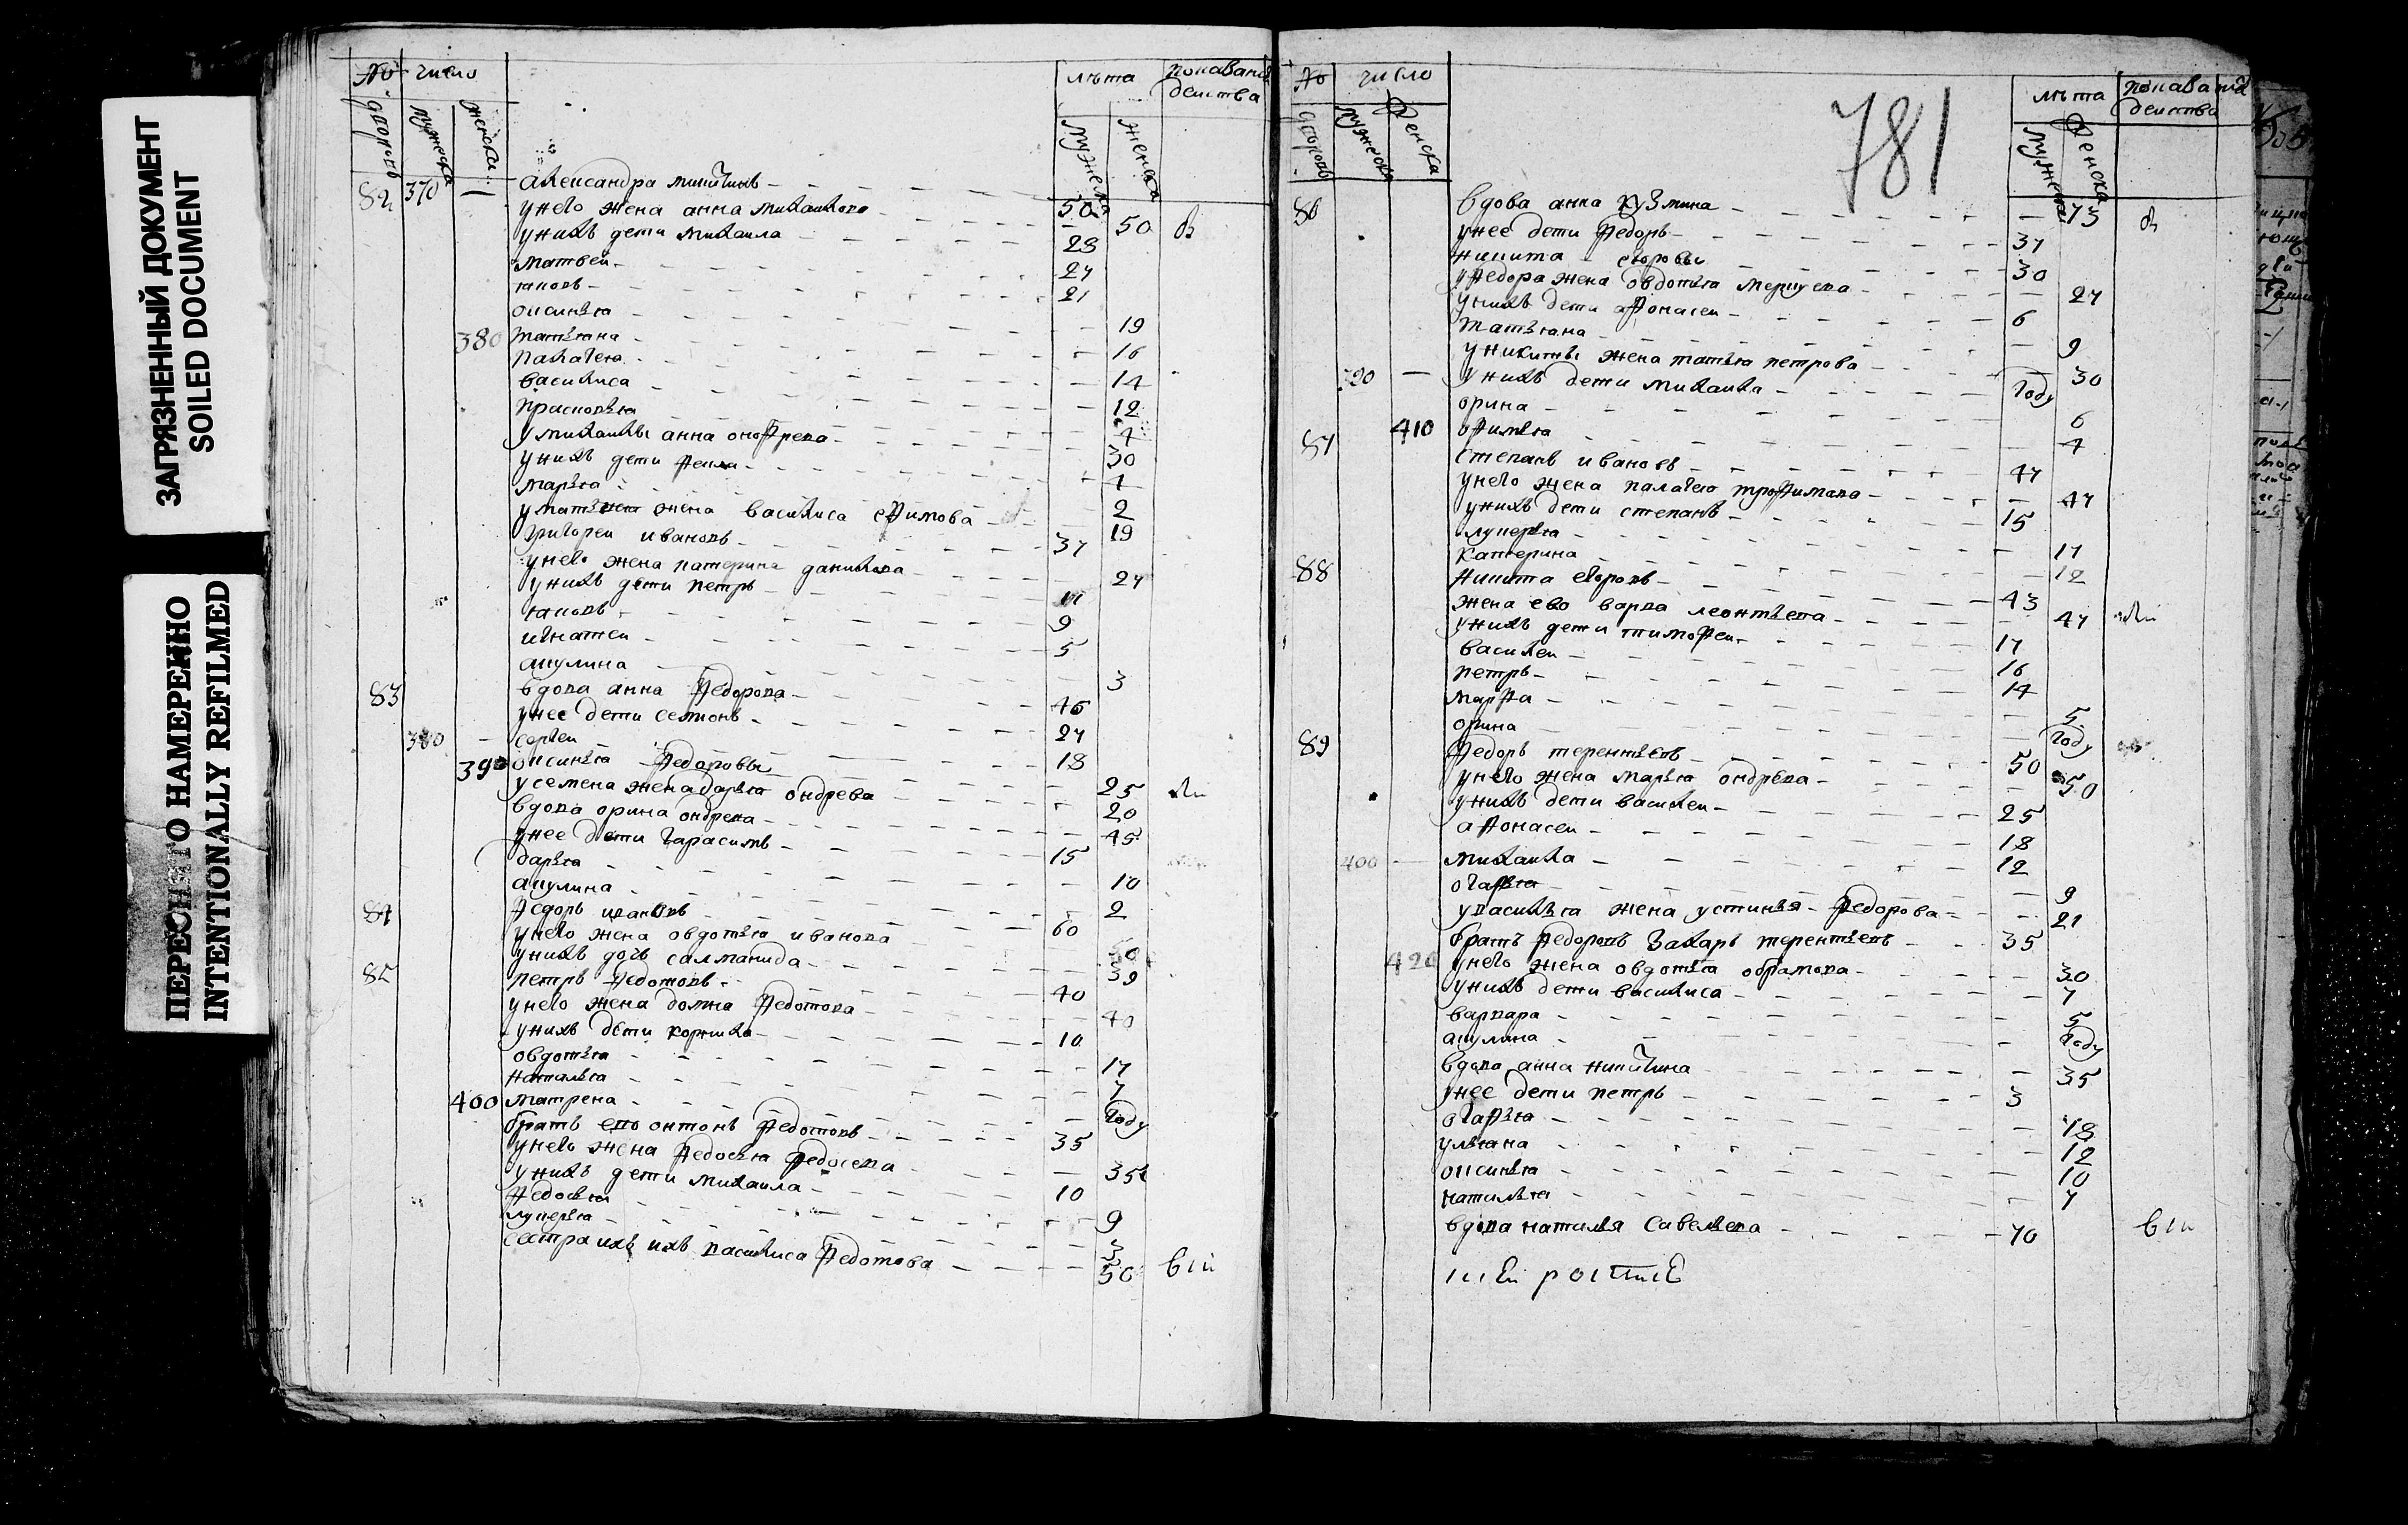 ЗАГРЯЗНЕННЫЙ ДОКУМЕНТ
SOILED DOCUMENT
ПЕРЕСНЯТО НАМЕРЕННО
INTENTIONALLY REFILMED
№ число лѣта
дворовъ мужеска женски мужеска женска
82 370 александра
унего жена анна михаилова 50
унихъ дети михаила 50
матвеи 23
яковъ 27
оксинья 21
380 татьяна 19
палагея 16
василиса 14
прасковья 12
умихаилы анна онофрева
унихъ дети 30
марья 1
жена василиса ефимова 2
григореи ивановъ 19
37
унего жена катерина данилова
унихъ дети петръ 27
яковъ
игнатеи 9
акулина 5
83 вдова анна федорова 3
унее дети семионъ 46
380 сергеи 27
390 оксинья федоровы 18
усемена жена дарья ондрева 25
вдова орина ондрева 20
унее дети гарасимъ 45
дарья 15
акулина 10
84 федоръ ивановъ 2
унего жена овдотья иванова 60
унихъ дочь салманида
85 петръ федотовъ 39
унего жена домна федотова 40
унихъ дети корнила 40
овдотья 10
наталья 17
400 матрена 7
братъ ево онтонъ федотовъ году
унего жена федосья федосева 35
унихъ дети михаила 35
федосья 10
лукерья 9
сестра ихъ ихъ василиса федотова 3
50
№ число 781 лѣта
дворовъ мужеска женска мужеска женска
86 вдова анна кузмина 73
унее дети федоръ 37
никита егоровы 30
уфедора жена овдотья 27
унихъ дети афонасеи 6
татьяна 9
уникиты жена татья петрова 30
390 унихъ дети михаила году
орина 6
410 офимья 4
87 степанъ ивановъ 47
унего жена палагея трофимова 47
унихъ дети степанъ 15
лукерья 17
катерина 12
88 никита егоровъ 43
жена ево варва леонтьева 47
унихъ дети тимофеи 17
василеи 16
петръ 14
марфа 5
орина году
89 федоръ терентьевъ 50
унего жена марья ондрева 50
унихъ дети василеи 25
афонасеи 18
400 михаила 12
огафья 9
увасилья жена устинья федорова 21
братъ федоровъ захаръ терентьевъ 35
420 унего жена овдотья обрамова 30
унихъ дети василиса 7
варвара 5
акулина году
вдова анна никитина 35
унее дети петръ 3
огафья 18
ульяна 12
оксинья 10
наталья 7
вдова наталья савельева 70